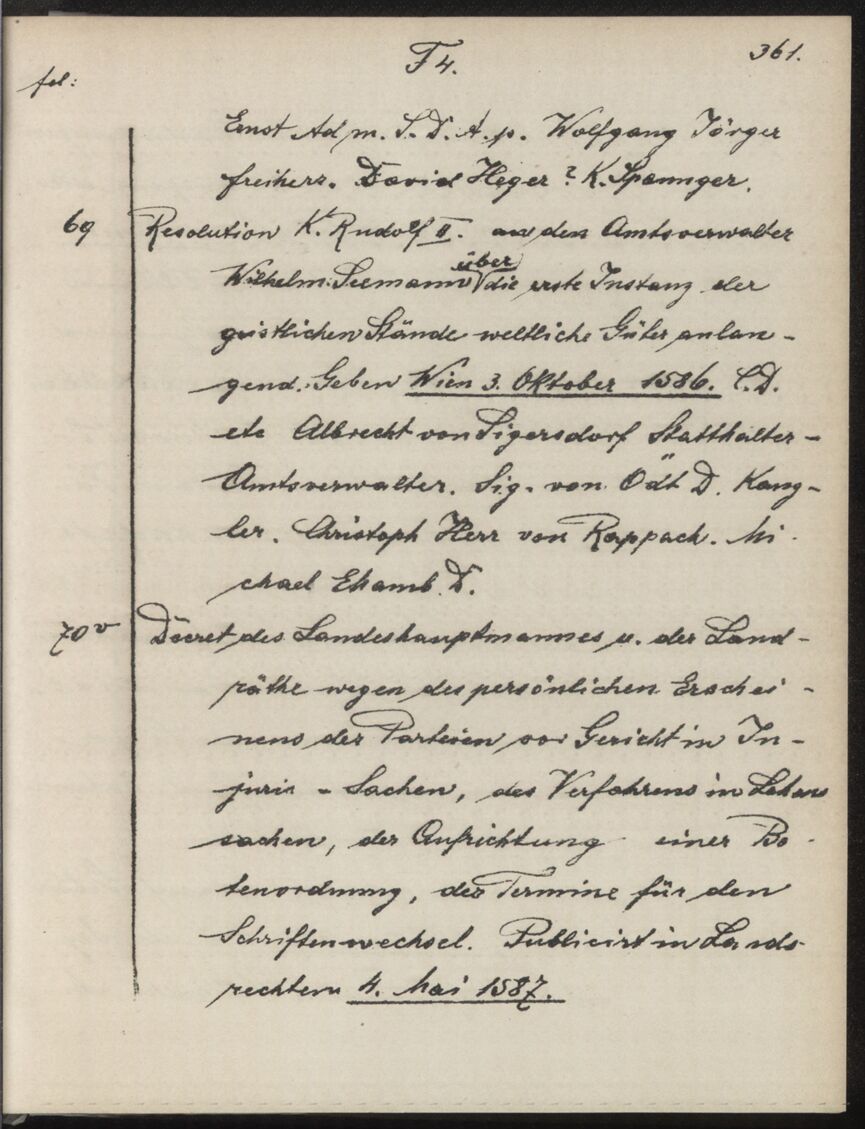 F 4.
361.
fol:
Ernst Ad m. S. D. A. p. Wolfgang Jörger
freiherr. David Heger ? K. Spannger.
69 Resolution K. Rudolf II. an den Amtsverwalter
Wilhelm Seemann über die erste Instanz der
geistlichen Stände weltliche Güter anlan-
gend. Geben Wien 3. Oktober 1586. C. D.
etc Albrecht von Sigersdorf Statthalter-
Amtsverwalter. Sig. von Ödt D. Kanz-
ler. Christoph Herr von Rappach. Mi-
chael Ehamb. D.
70v Decret des Landeshauptmannes u. der Land-
räthe wegen des persönlichen Erschei-
nens der Parteien vor Gericht in In-
jurie - Sachen, des Verfahrens in Lehens
sachen, der Aufrichtung einer Bo-
tenordnung, der Termine für den
Schriftenwechsel. Publicirt in Lands-
rechten 4. Mai 1587.